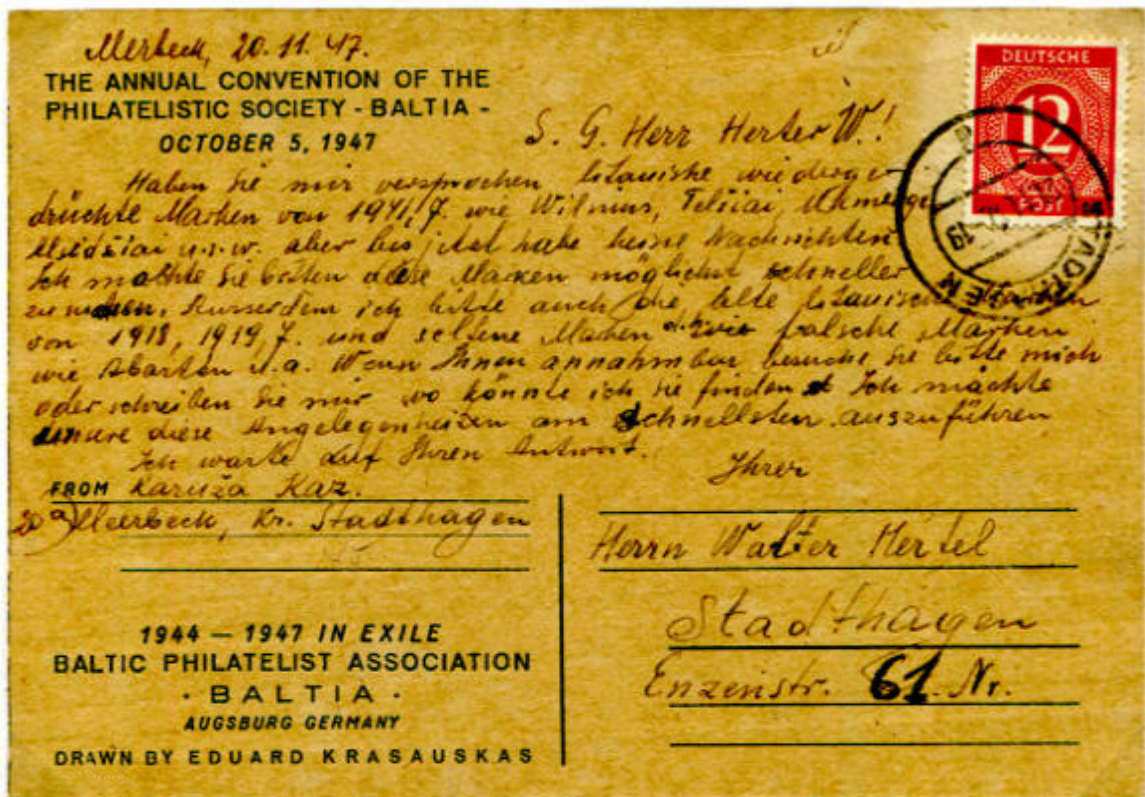 Merbeck, 20. 11. 47.
THE ANNUAL CONVENTION OF THE
PHILATELISTIC SOCIETY - BALTIA -
OCTOBER 5, 1947
S. G. Herr Herter W!
Haben Sie mir versprochen litauiske wiederge
drückte Marken von 1941, J. wie Wilnius, Telšiai, Ukmerge
u.s.w. aber bis jetzt habe keine Nachrichten
Ich mochte Sie bitten diese Marken möglichst schneller
Ausserdem ich bitte auch die alte litauische Marken
von 1918, 1919, J. und seltene Marken falsche Marken
wie Abarten u.a. Wenn Ihnen annahmbar besuche Sie bitte mich
oder schreiben Sie mir wo könnte ich Sie finden Ich möchte
unsere diese Angelegenheizen am schnellsten auszuführen
Ich warte auf Ihren Antwort.
Ihrer
FROM Karuža Kaz.
20a) Meerbeck, Kr. Stadthagen
1944 — 1947 IN EXILE
BALTIC PHILATELIST ASSOCIATION
· BALTIA ·
AUGSBURG GERMANY
DRAWN BY EDUARD KRASAUSKAS
DEUTSCHE
12
POST
Herrn Walter Hertel
Stadthagen
Enzenstr. 61. Nr.